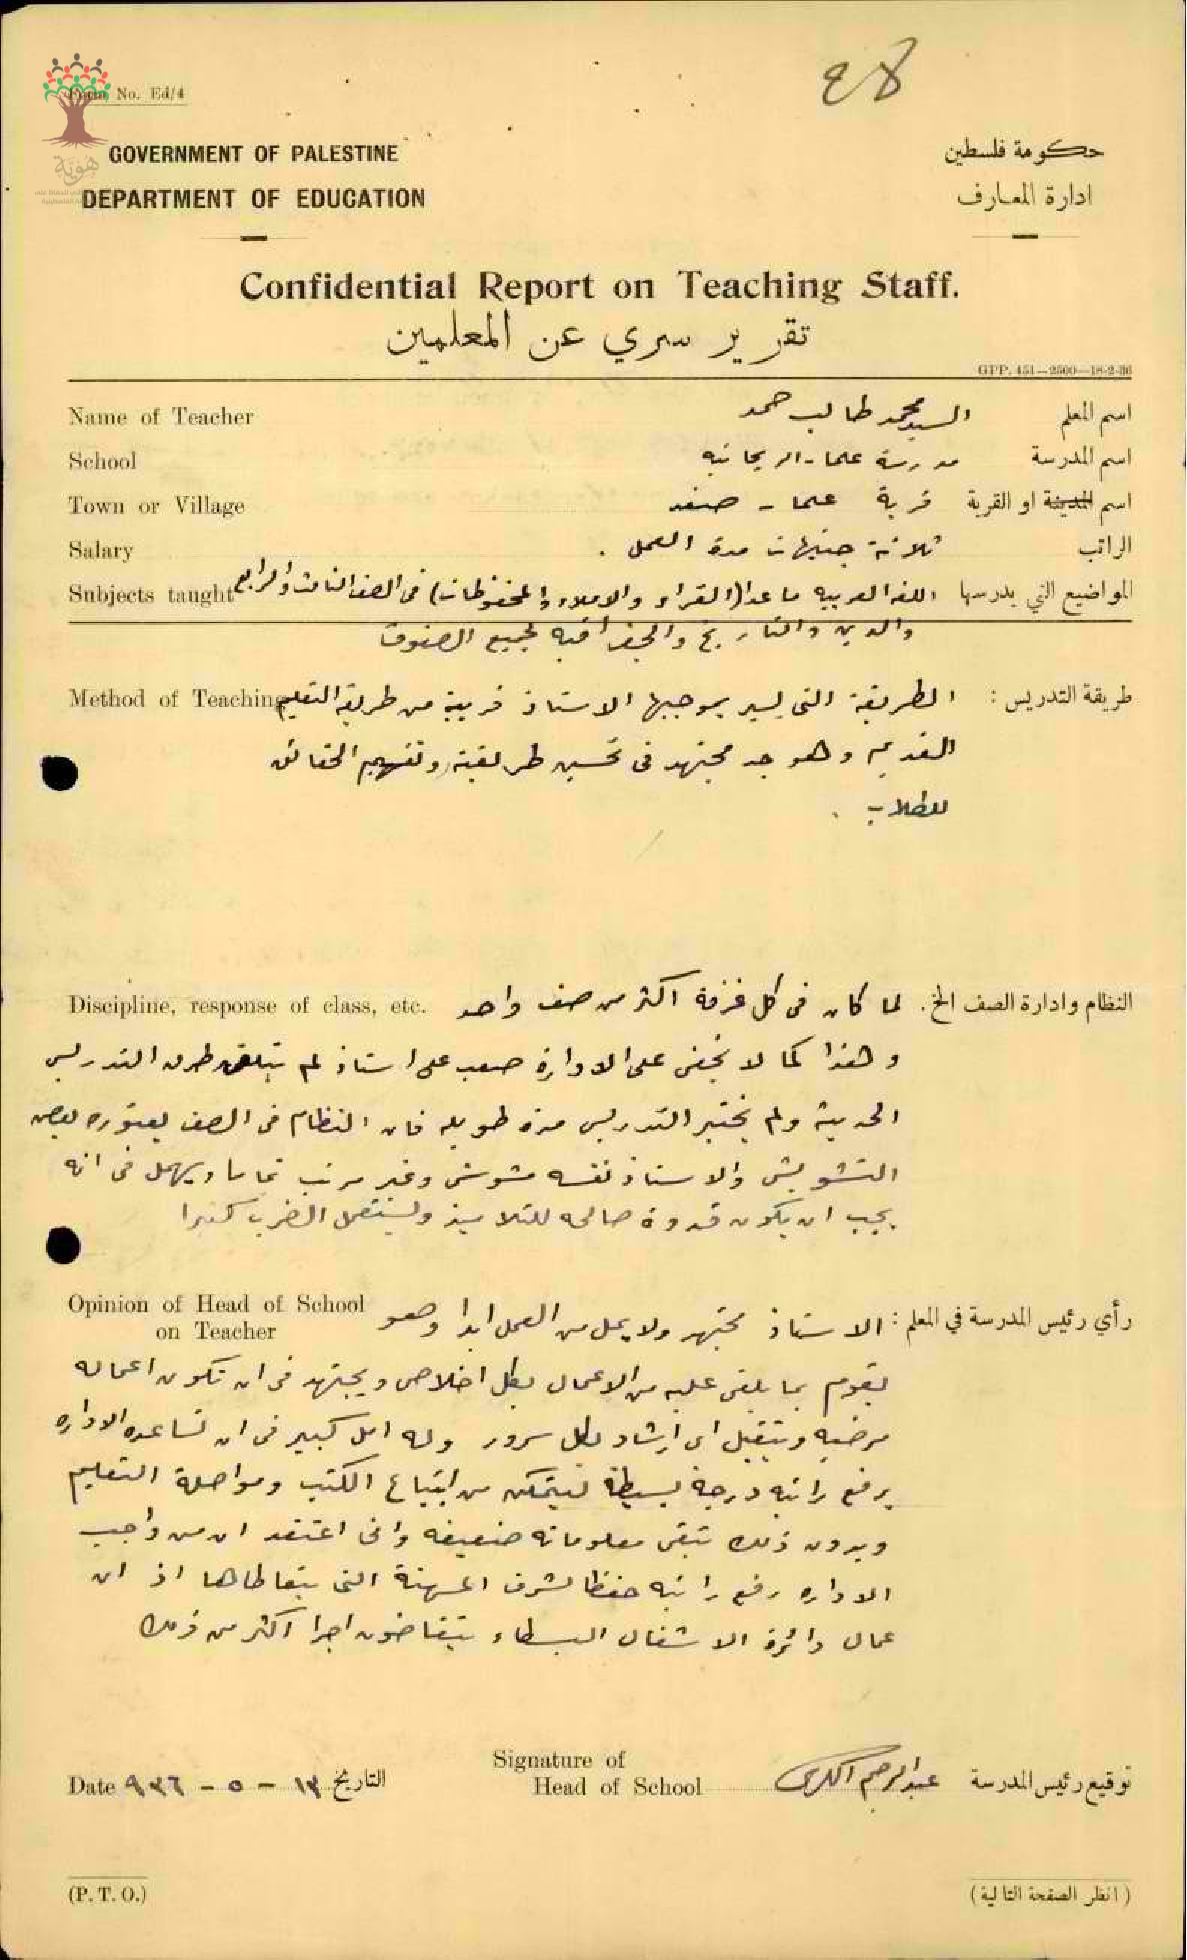 ٤٨
Form No. Ed/4
هوية
GOVERNMENT OF PALESTINE
حكومة فلسطين
DEPARTMENT OF EDUCATION
ادارة المعارف
Confidential Report on Teaching Staff.
تقرير سري عن المعلمين
GPP. 451—2500—18-2-36
Name of Teacher السيد محمد طالب حمد اسم المعلم
School مدرسة علما - الريحانيه اسم المدرسة
Town or Village قرية علما - صفد اسم المدينة او القرية
Salary ثلاثة جنيهات مدة العمل . الراتب
Subjects taught اللغه العربيه ما عدا (القراءه والاملاء والمحفوظات) في الصف الثالث والرابع المواضيع التي يدرسها
والدين والتاريخ والجغرافيه لجميع الصفوف
Method of Teaching الطريقة التي يسير بموجبها الاستاذ قريبة من طريقة التعليم طريقة التدريس :
القديم وهو جد مجتهد في تحسين طريقته وتفهيم الحقائق
للطلاب .
Discipline, response of class, etc. لما كان في كل غرفة اكثر من صف واحد النظام وادارة الصف الخ .
وهذا كما لا يخفى على الادارة صعب على استاذ لم يتلق طرق التدريس
الحديثة ولم يختبر التدريس مدة طويله فان النظام في الصف يعتوره بعض
التشويش والاستاذ نفسه مشوش وغير مرتب تماما ويهمل في انه
يجب ان يكون قدوة صالحه للتلاميذ ويستعمل الضرب كثيرا
Opinion of Head of School
on Teacher
رأي رئيس المدرسة في المعلم : الاستاذ مجتهد ولا يمل من العمل ابدا وهو
يقوم بما يلقى عليه من الاعمال بكل اخلاص ويجتهد في ان تكون اعماله
مرضيه ويتقبل اي ارشاد بكل سرور وله امل كبير في ان تساعده الاداره
برفع راتبه درجة بسيطة ليتمكن من ابتياع الكتب ومواصلة التعليم
وبدون ذلك تبقى معلوماته ضعيفه واني اعتقد ان من واجب
الاداره رفع راتبه حفظا لشرف المهنة التي يتعاطاها اذ ان
عمال دائرة الاشغال البسطاء يتقاضون اجرا اكثر من ذلك
Signature of
Head of School عبد الرحيم توقيع رئيس المدرسة
Date ١٣ - ٥ - ٩٣٦ التاريخ
(P. T. O.)
(انظر الصفحة التالية)